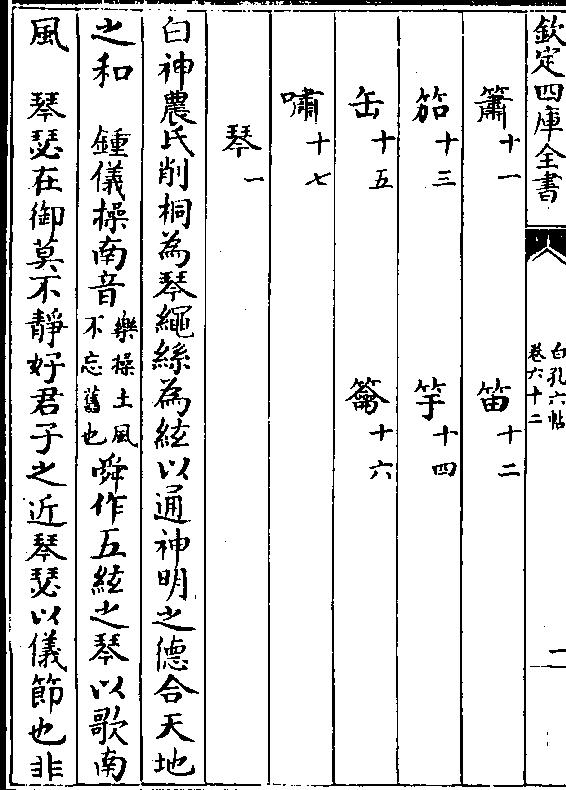 欽定四庫全書
白孔六帖
卷六十二
二
簫十一
笛十二
笳十三
竽十四
缶十五
籥十六
嘯十七
琴一
白神農氏削桐為琴繩絲為絃以通神明之德合天地
之和　鍾儀操南音樂操土風不忘舊也舜作五絃之琴以歌南
風　琴瑟在御莫不靜好君子之近琴瑟以儀節也非